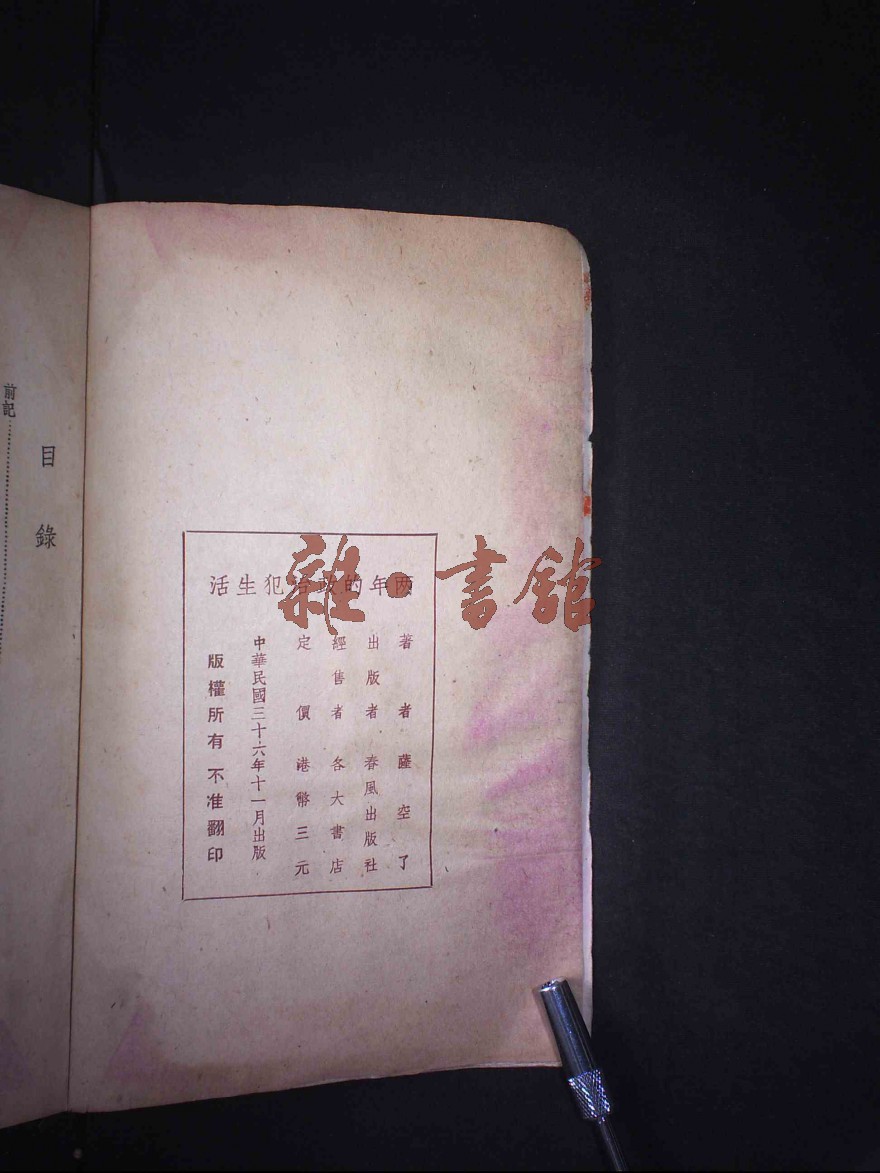 两年的政治犯生活
著者 薩空了
出版者 春風出版社
經售者 各大書店
定價 港幣三元
中華民國三十六年十一月出版
版權所有 不准翻印
目錄
前記
雜·書館